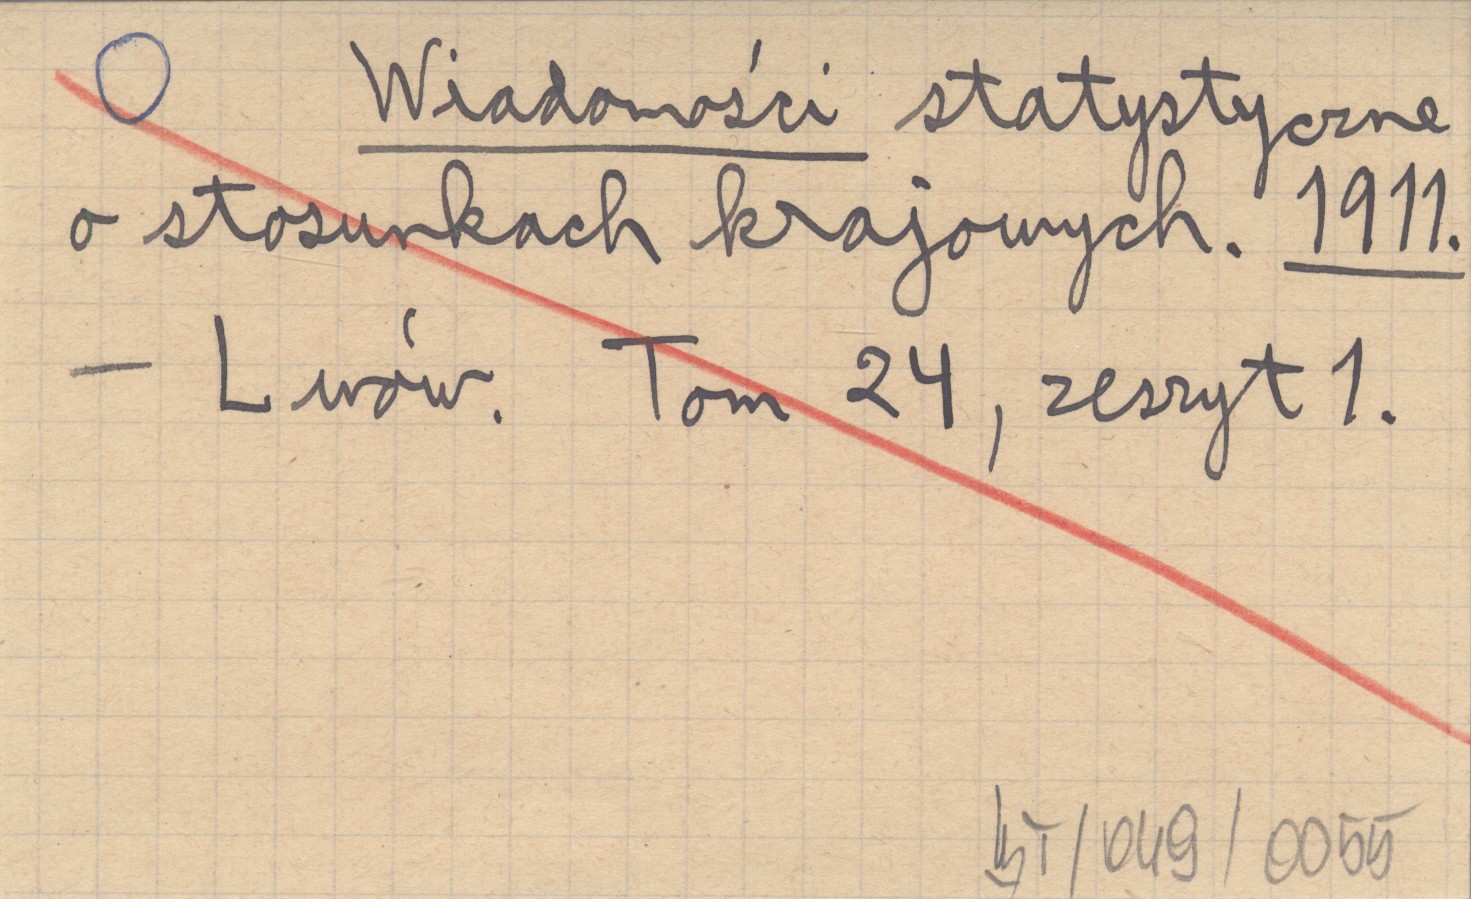 Wiadomości statystyczne
o stosunkach krajowych. 1911.
— Lwów. Tom 24, zeszyt 1.
/049/0055